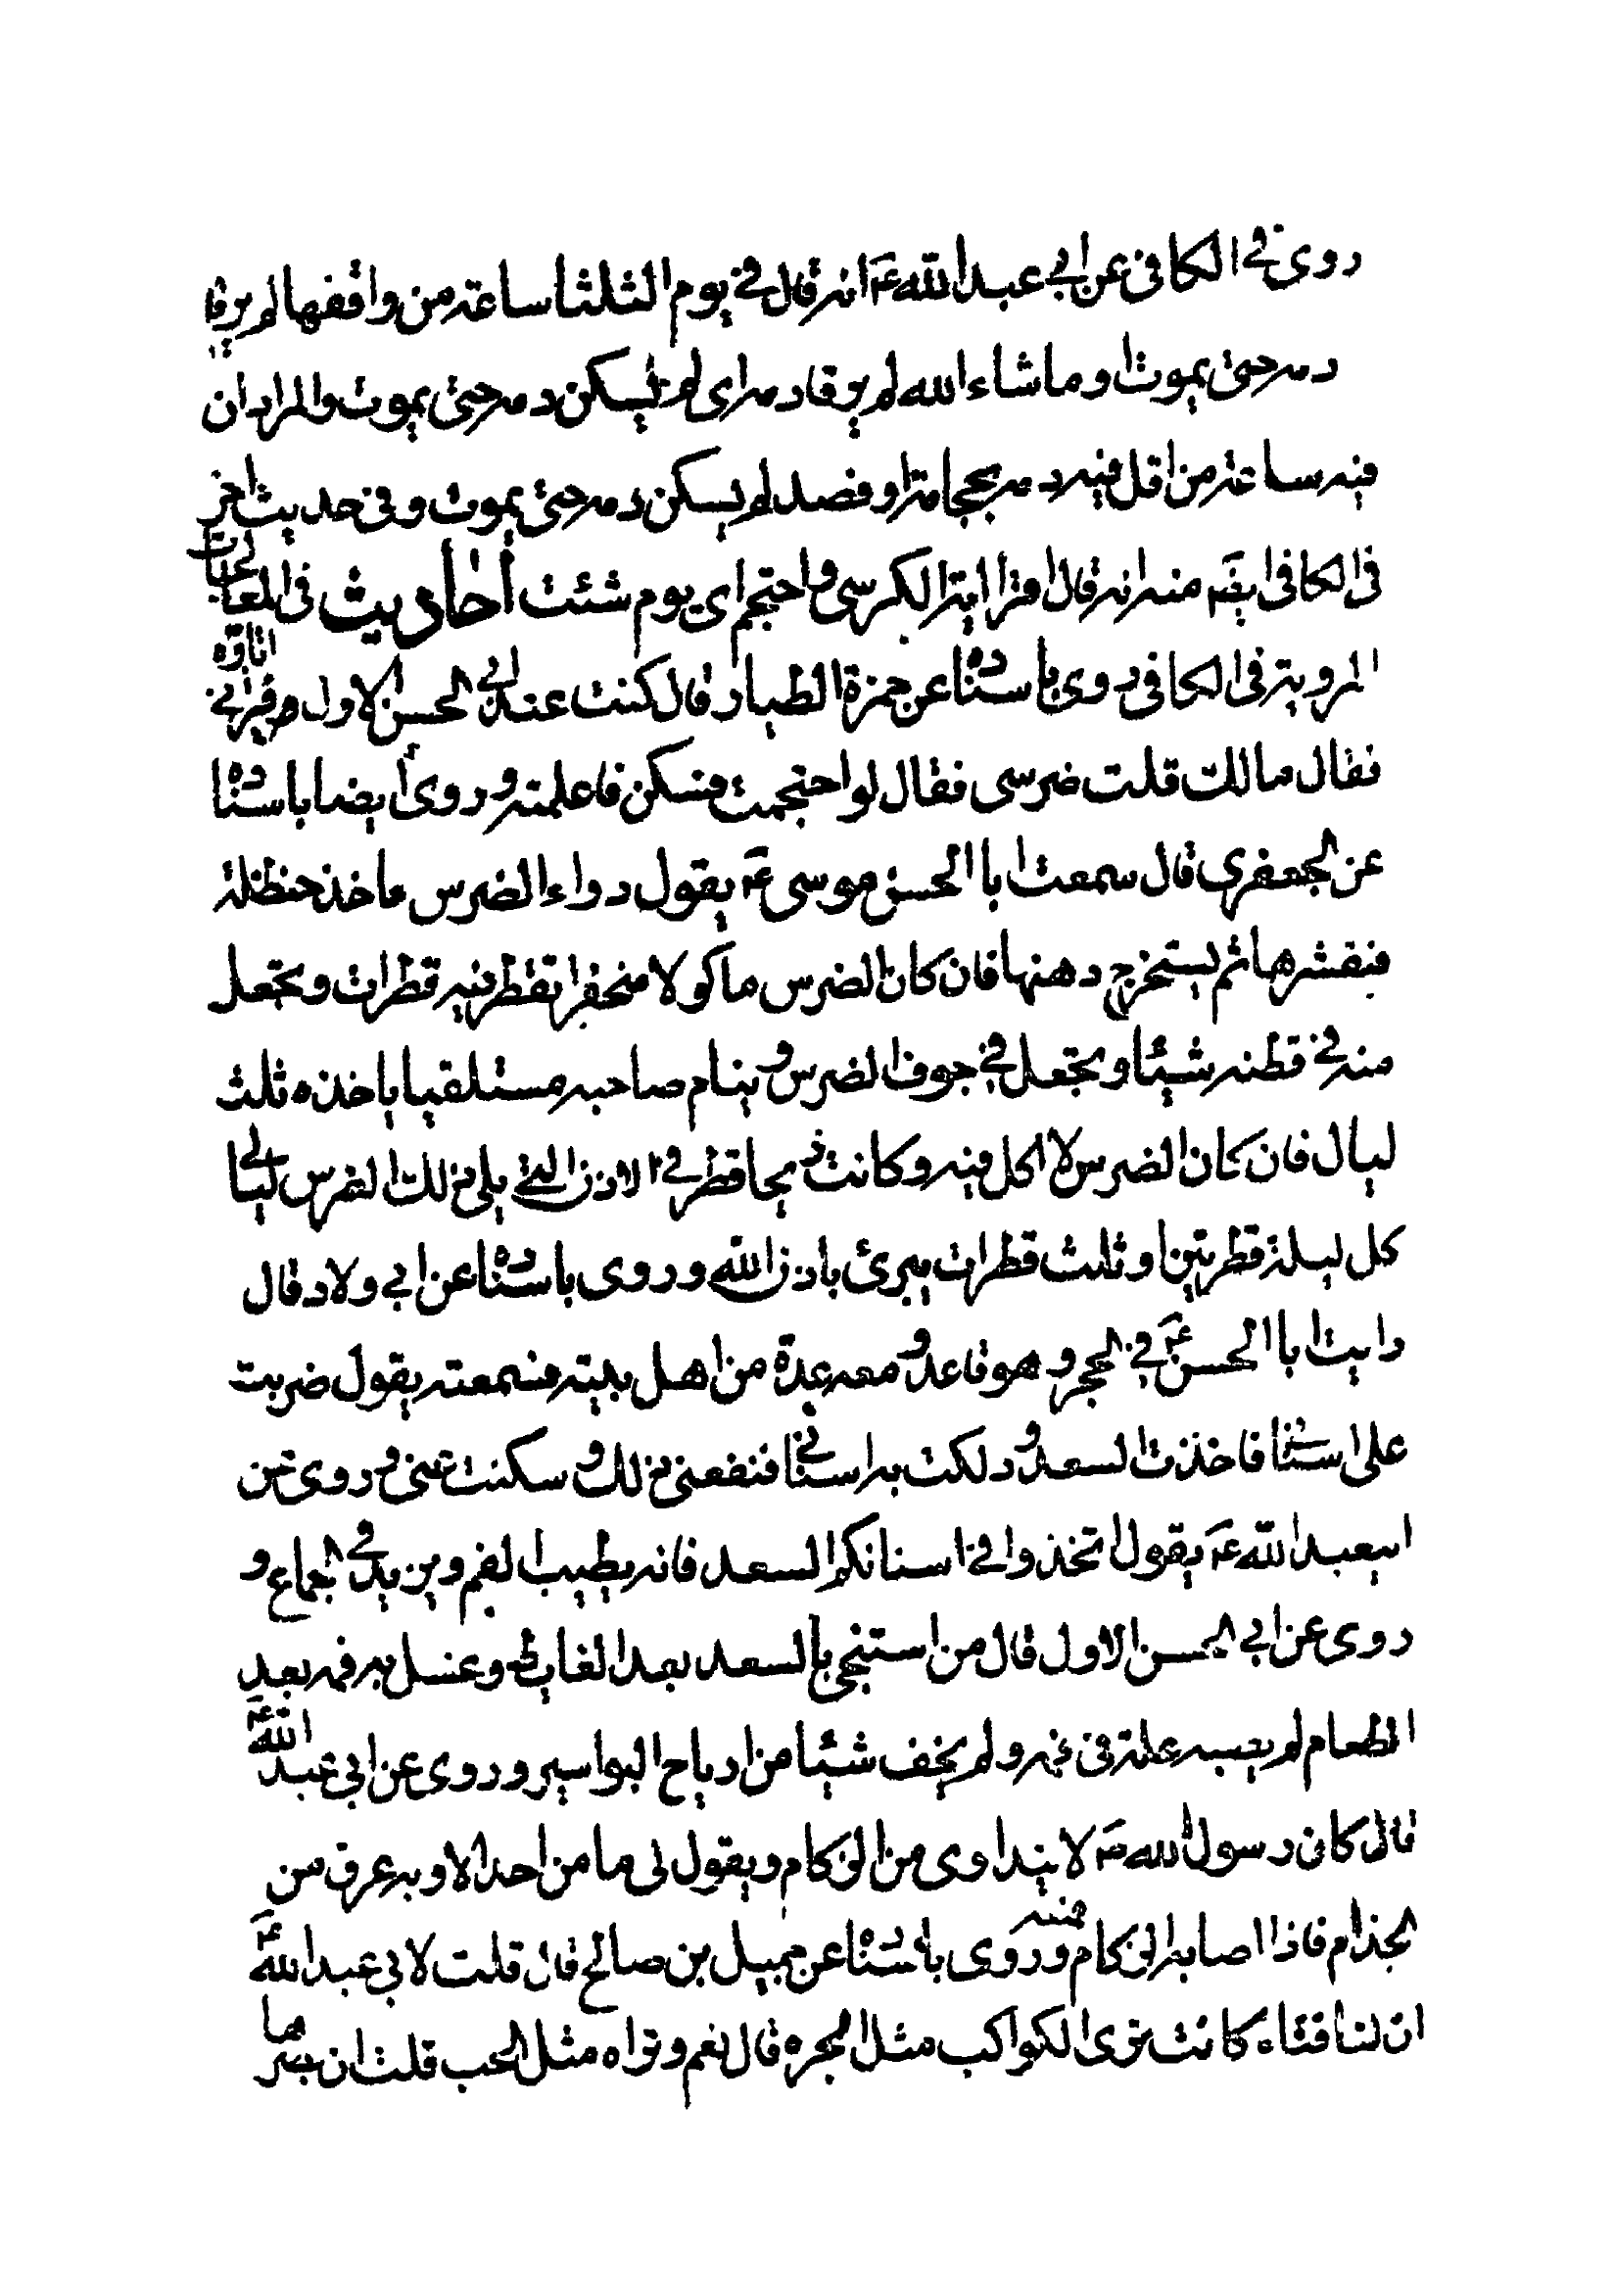 روى في الكافي عن ابي عبد الله ع انه قال في يوم الثلثا ساعة من وافقها لم يرقا
دمه حتى يموت او ما شاء الله لم يرقا دمه اي لم يسكن دمه حتى يموت والمراد ان
فيه ساعة من اقل فيه دمه بحجامة او فصد لم يسكن دمه حتى يموت وفي حديث اخر
في الكافي ايضا منه انه قال اقرا اية الكرسي واحتجم اي يوم شئت أحاديث في المعالجات
المروية في الكافي روى باسناده عن حمزة الطيار قال كنت عند ابي الحسن الاول ع فراني اتاوه
فقال مالك قلت ضرسي فقال لو احتجمت فسكن فاعلمته وروى ايضا باسناده
عن الجعفري قال سمعت ابا الحسن موسى ع يقول دواء الضرس ماخذ حنظلة
فيقشرها ثم يستخرج دهنها فان كان الضرس ماكولا منحفرا تقطر فيه قطرات وتجعل
منه في قطنه شيئا وتجعل في جوف الضرس وينام صاحبه مستلقيا ياخذه ثلث
ليال فان كان الضرس لا اكل فيه وكانت ريحا قطر في الاذن التي يلي ذلك الضرس ليالي
كل ليلة قطرتين او ثلث قطرات يبرئ باذن الله وروى باسناده عن ابي ولاد قال
رايت ابا الحسن ع في الحجر وهو قاعد ومعه عدة من اهل بيته فسمعته يقول ضربت
علي اسناني فاخذت السعد ودلكت به اسناني فنفعني ذلك وسكنت عني وروى عن
ابيعبد الله ع يقول اتخذوا في اسنانكم السعد فانه يطيب الفم ويزيد في الجماع و
روى عن ابي الحسن الاول قال من استنجى بالسعد بعد الغايط وغسل به فمه بعد
الطعام لم يصيبه علة في فمه ولم يخف شيئا من ارياح البواسير وروى عن ابي عبد الله ع
قال كان رسول الله ص لا يتداوى من الزكام ويقول لي ما من احد الا وبه عرق من
الجذام فاذا اصابه الزكام وروى باسناده عن جميل بن صالح قال قلت لابي عبد الله ع
ان لنا فتاة كانت ترى الكواكب مثل الجره قال نعم وتراه مثل الحب قلت ان بصرها